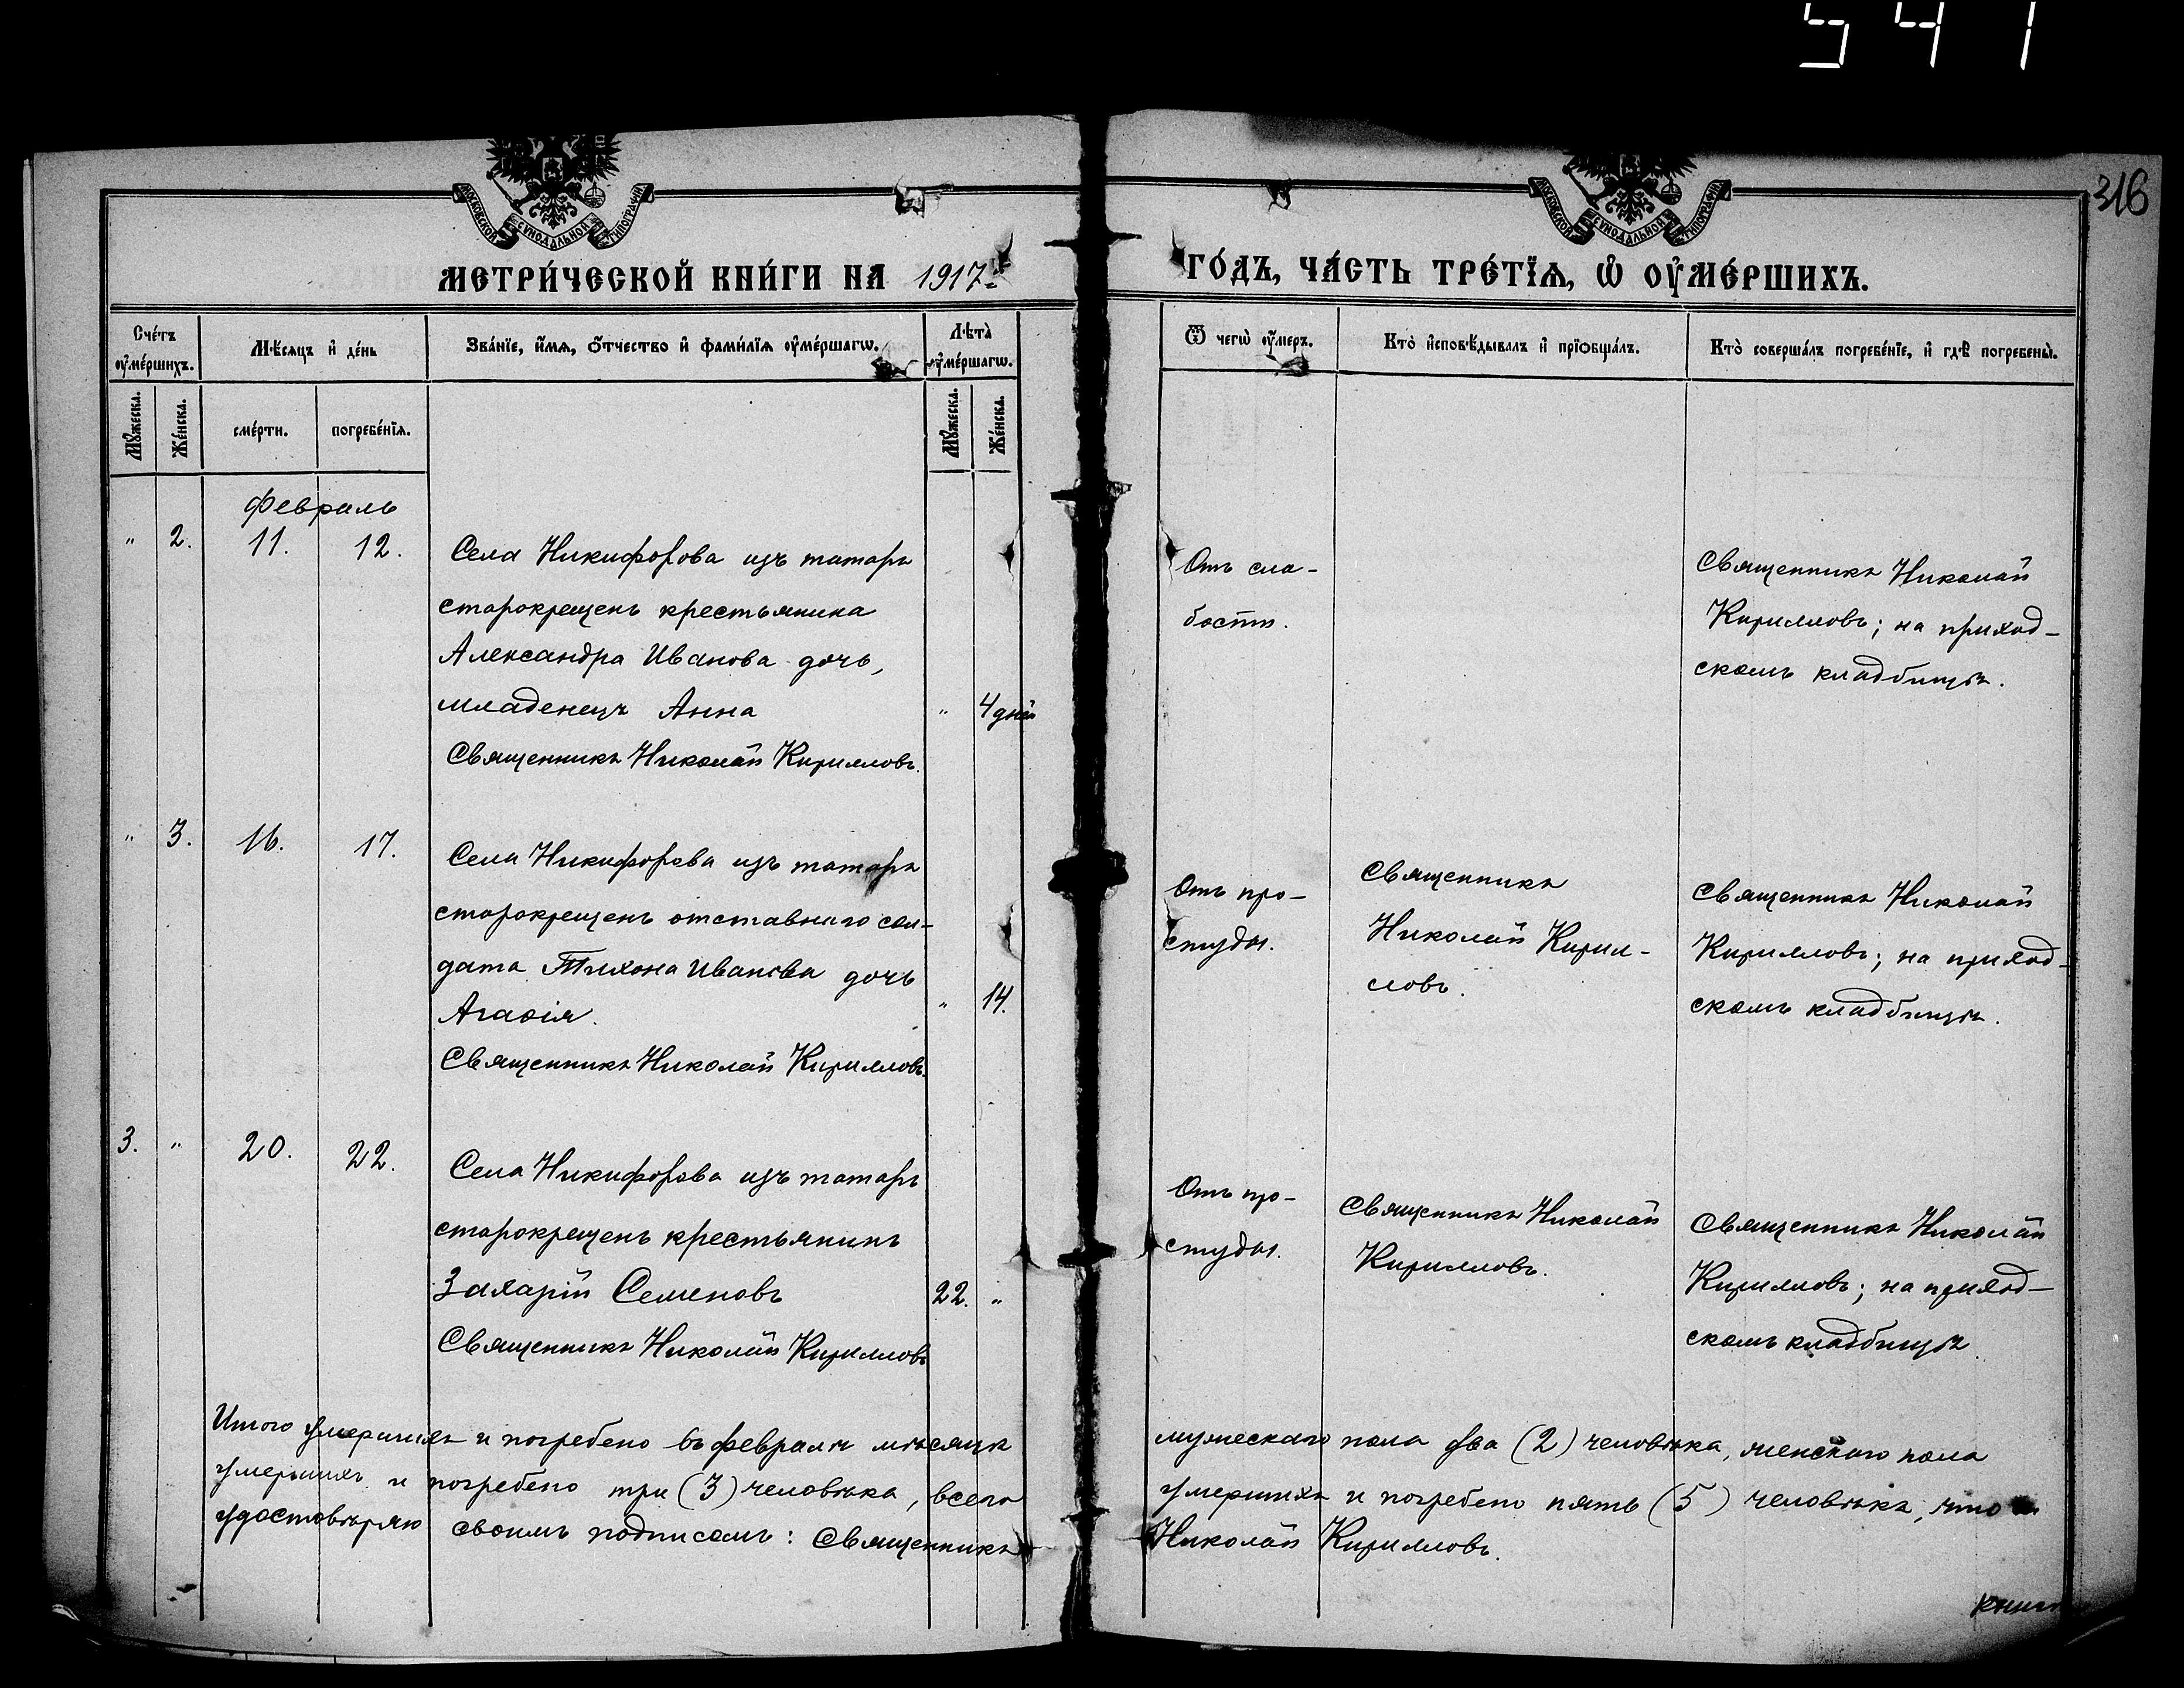 541
316
МОСКОВСКОЙ СѴНОДАЛЬНОЙ ТИПОГРАФІИ
МОСКОВСКОЙ СѴНОДАЛЬНОЙ ТИПОГРАФІИ
МЕТРИ́ЧЕСКОЙ КНИ́ГИ НА 1917-й ГО́ДЪ, ЧА́СТЬ ТРЕ́ТЇѦ, Ѡ҆ ОУ҆МЕ́РШИХЪ.
Сче́тъ оу҆ме́ршихъ.
Мѣ́сяцъ и҆ де́нь
Зва́нїе, и҆́мѧ, ѻ҆́тчество и҆ фами́лїѧ оу҆ме́ршагѡ.
Лѣ́та оу҆ме́ршагѡ.
Ѿ чегѡ̀ оу҆́меръ.
Кто̀ и҆сповѣ́дывалъ и҆ прїѡбща́лъ.
Кто̀ соверша́лъ погребе́нїе, и҆ гдѣ̀ погребены̀.
Мꙋ́жеска.
Же́нска.
сме́рти.
погребе́нїѧ.
Мꙋ́жеска.
Же́нска.
Февраль
" 2. 11. 12.
Села Никифорова изъ татаръ
старокрещенъ крестьянина
Александра Иванова дочь,
младенецъ Анна
" 4 дней
Священникъ Николай Кирилловъ.
Отъ сла-
бости.
Священникъ Николай
Кирилловъ; на приход-
скомъ кладбищѣ.
" 3. 16. 17.
Села Никифорова изъ татаръ
старокрещенъ отставнаго сол-
дата Тихона Иванова дочь
Агаѳія.
" 14.
Священникъ Николай Кирилловъ.
Отъ про-
студы.
Священникъ
Николай Кирил-
ловъ.
Священникъ Николай
Кирилловъ; на приход-
скомъ кладбищѣ.
3. " 20. 22.
Села Никифорова изъ татаръ
старокрещенъ крестьянинъ
Захарій Семеновъ
22. "
Священникъ Николай Кирилловъ
Отъ про-
студы.
Священникъ Николай
Кирилловъ.
Священникъ Николай
Кирилловъ; на приход-
скомъ кладбищѣ.
Итого умершихъ и погребено въ февралѣ мѣсяцѣ мужескаго пола два (2) человѣка, женскаго пола
умершихъ и погребено три (3) человѣка, всего умершихъ и погребено пять (5) человѣкъ, что
удостовѣряю своимъ подписомъ: Священникъ Николай Кирилловъ.